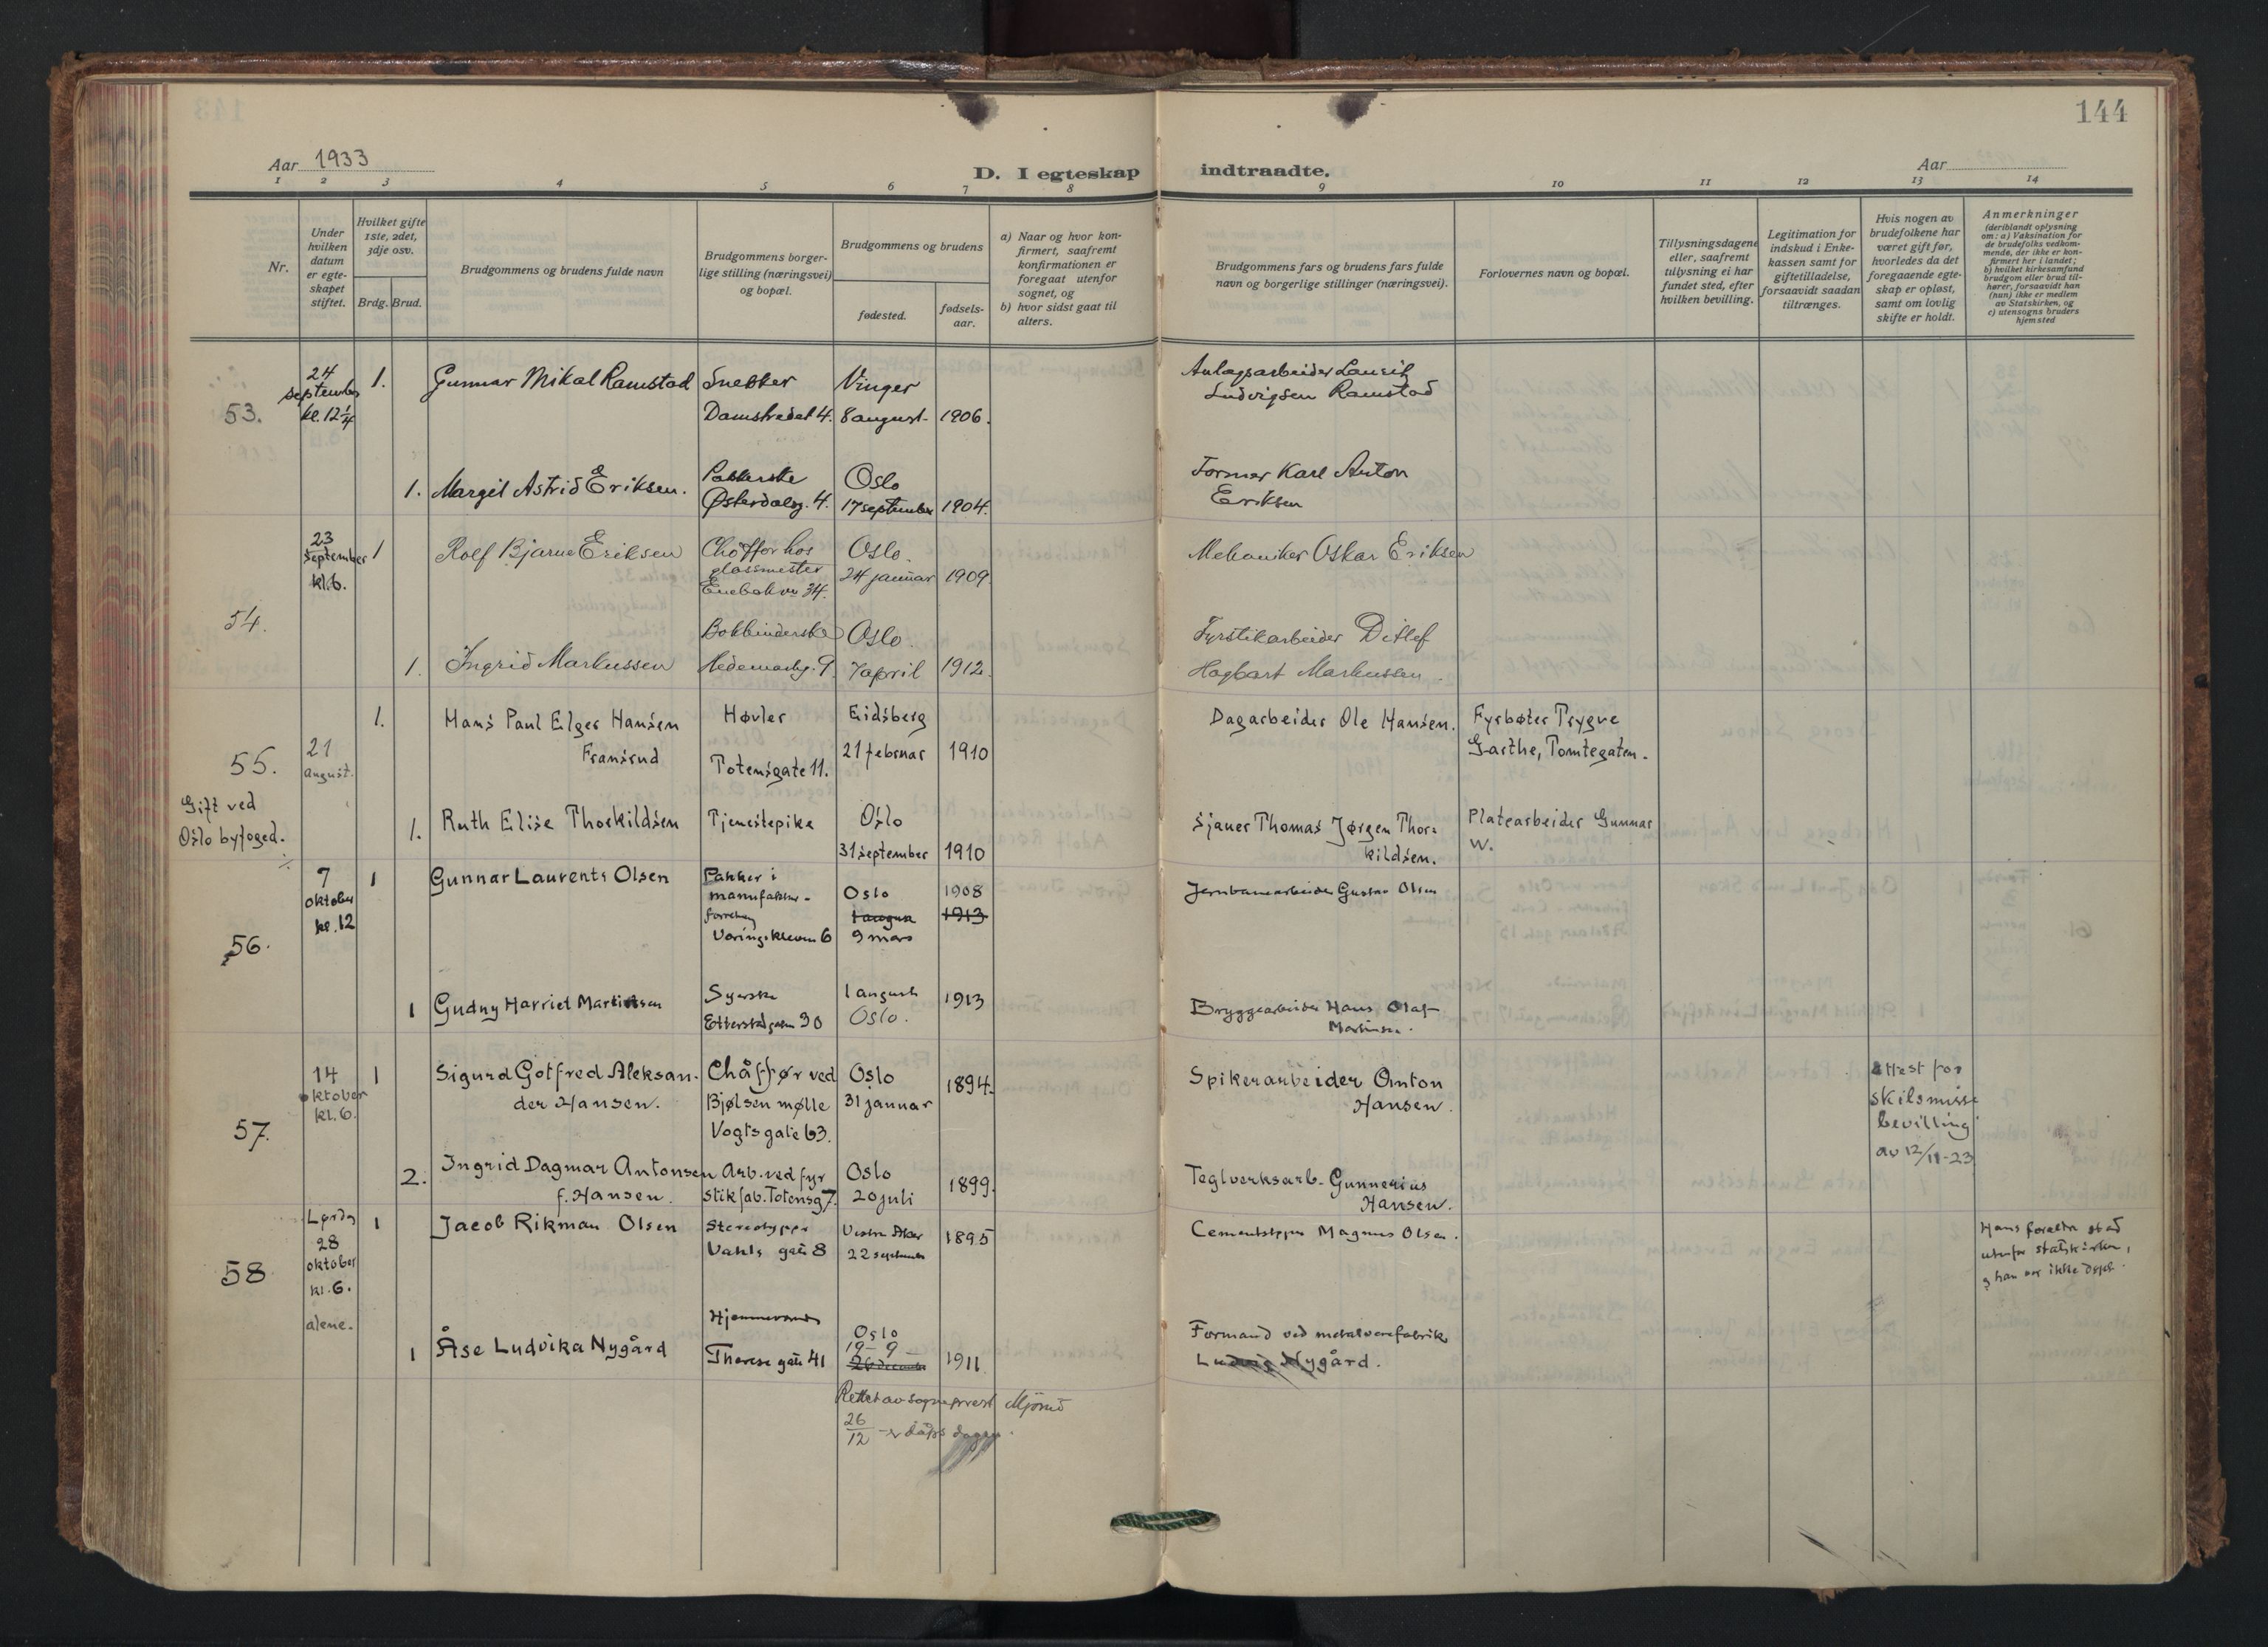 144
Aar 1933
D. I egteskap indtraadte.
Aar
1 2 3 4 5 6 7 8 9 10 11 12 13 14
Nr.
Under
hvilken
datum
er egte-
skapet
stiftet.
Hvilket gifte
1ste, 2det,
3dje osv.
Brdg. Brud.
Brudgommens og brudens fulde navn
Brudgommens borger-
lige stilling (næringsvei)
og bopæl.
Brudgommens og brudens
fødested.
fødsels-
aar.
a) Naar og hvor kon-
firmert, saafremt
konfirmationen er
foregaat utenfor
sognet, og
b) hvor sidst gaat til
alters.
Brudgommens fars og brudens fars fulde
navn og borgerlige stillinger (næringsvei).
Forlovernes navn og bopæl.
Tillysningsdagene
eller, saafremt
tillysning ei har
fundet sted, efter
hvilken bevilling.
Legitimation for
indskud i Enke-
kassen samt for
giftetilladelse,
forsaavidt saadan
tiltrænges.
Hvis nogen av
brudefolkene har
været gift før,
hvorledes da det
foregaaende egte-
skap er opløst,
samt om lovlig
skifte er holdt.
Anmerkninger
(deriblandt oplysning
om: a) Vaksination for
de brudefolks vedkom-
mende, der ikke er kon-
firmert her i landet;
b) hvilket kirkesamfund
brudgom eller brud til-
hører, forsaavidt han
(hun) ikke er medlem
av Statskirken, og
c) utensogns bruders
hjemsted
53.
24
september
kl. 12 1/4
1.
Gunnar Mikal Ramstad
Snekker
Damstredet 4.
Vinger
8 august 1906.
Anlægsarbeider Lauritz
Ludvigsen Ramstad
1. Margit Astrid Eriksen.
Pakkerske
Østerdalsg. 4.
Oslo
17 september 1904.
Former Karl Anton
Eriksen
54.
23
september
kl. 6.
1
Rolf Bjarne Eriksen
Chåffør hos
glassmester
Enebakvn 34.
Oslo.
24 januar 1909
Mekaniker Oskar Eriksen
1. Ingrid Markussen
Bokbinderske
Hedemarkg. 9.
Oslo.
7 april 1912.
Fyrstikarbeider Ditlef
Hagbart Markussen.
55.
Gift ved
Oslo byfoged.
21
august.
1.
Hans Paul Elger Hansen
Fransrud
Høvler
Totensgate 11.
Eidsberg
21 februar 1910
Dagarbeider Ole Hansen.
Fyrbøter Trygve
Garthe, Tomtegaten.
1. Ruth Elise Thorkildsen
Tjenestepike
Oslo
31 september 1910
Sjauer Thomas Jørgen Thor-
kildsen.
Platearbeider Gunnar
W.
56.
7
oktober
kl. 12
1
Gunnar Laurents Olsen
Pakker i
manufaktur-
forretng
Væringskleven 6
Oslo
1 august
9 mars
1908
1913
Jernbanearbeider Gustav Olsen
1 Gudny Harriet Martinsen
Syerske
Etterstadgaten 30
1 august
Oslo.
1913
Bryggearbeider Hans Olaf
Martinsen.
57.
14
oktober
kl. 6.
1
Sigurd Gotfred Aleksan-
der Hansen.
Chåffør ved
Bjølsen mølle
Vogts gate 63.
Oslo
31 januar
1894.
Spikerarbeider Anton
Hansen.
Attest for
skilsmisse
bevilling
av 12/11-23
2. Ingrid Dagmar Antonsen
f. Hansen.
Arb. ved fyr
stikfab. Totensg 7.
Oslo
20 juli
1899.
Teglverksarb. Gunnerius
Hansen.
58
Lørdag
28
oktober
kl. 6.
alene.
1
Jacob Rikman Olsen
Stereotypør
Vahls gate 8
Vestre Aker
22 september
1895
Cementstøper Magnus Olsen.
Hans foreldre stod
utenfor statskirken,
og han var ikke døpt.
1 Åse Ludvika Nygård
Hjemmeværende
Therese gate 41
Oslo
19-9
26 december
1911.
Formand ved metalvarefabrik
Ludvig Nygård.
Rettet av sogneprest Mjøsud
26/12 er dåpsdagen.